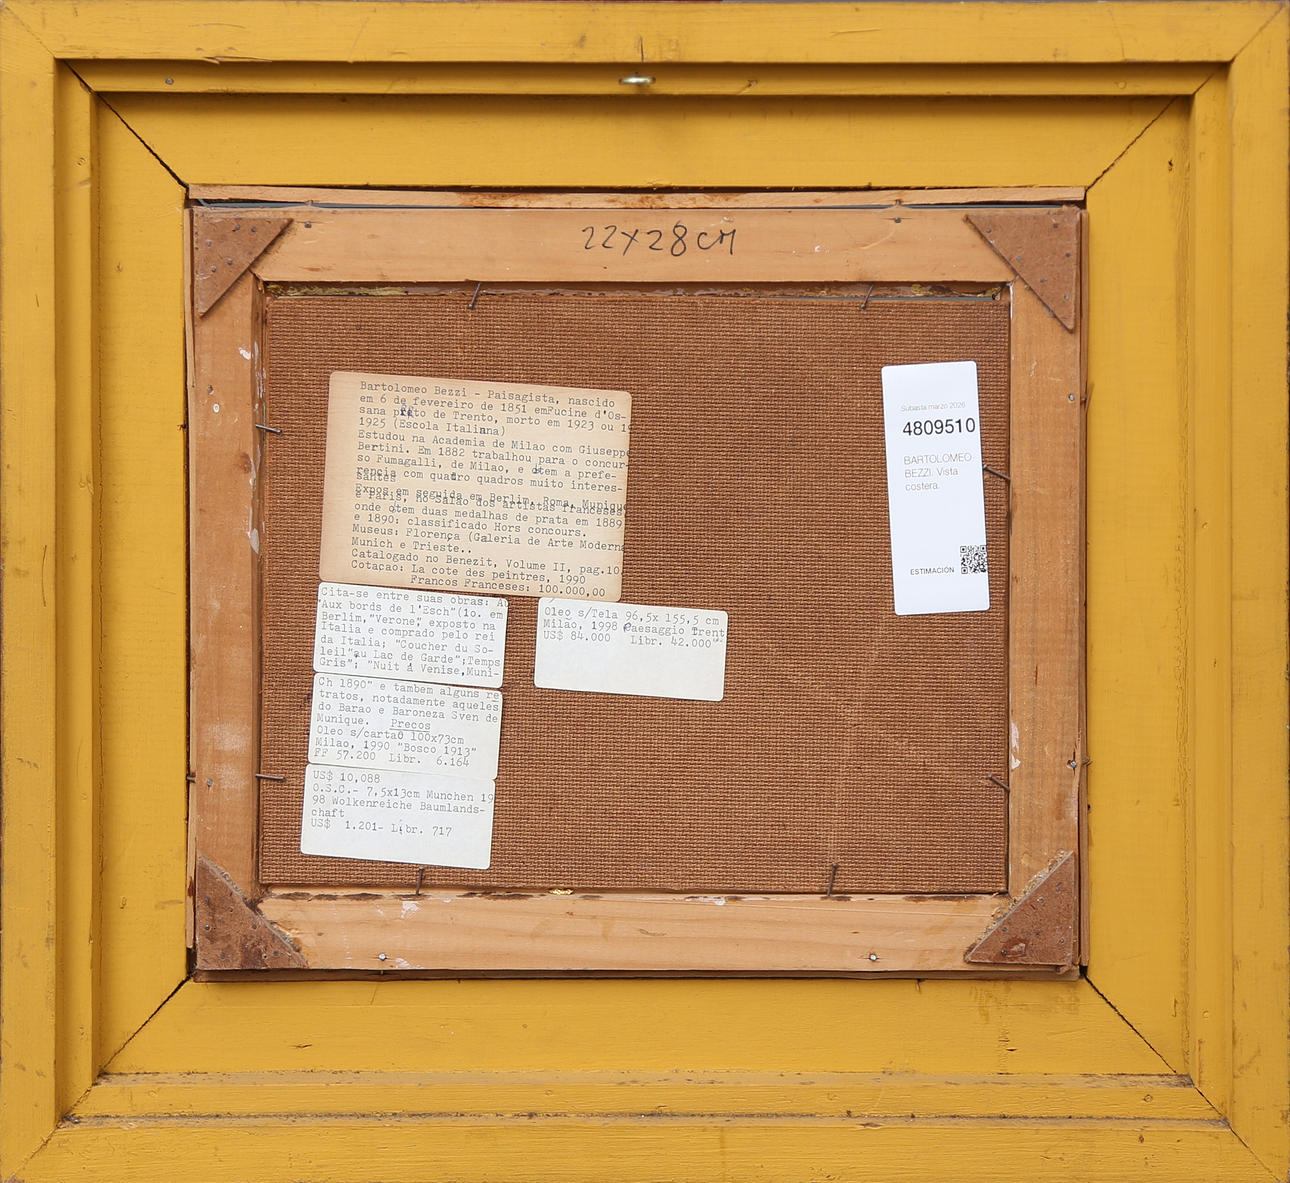 22x28CM
Bartolomeo Bezzi - Paisagista, nascido
em 6 de fevereiro de 1851 emFucine d'Os-
sana de Trento, morto em 1923 ou
1925 (Escola Italiana)
Estudou na Academia de Milao com Giuseppe
Bertini. Em 1882 trabalhou para o concur-
so Fumagalli, de Milao, e otem a prefe-
rencia com quatro quadros muito interes-
santes
Expos em seguida em Berlim, Roma, Munique
e Paris, no Salao dos artistas franceses,
onde otem duas medalhas de prata em 1889
e 1890: classificado Hors concours.
Museus: Florença (Galeria de Arte Moderna
Munich e Trieste..
Catalogado no Benezit, Volume II, pag.10
Cotaçao: La cote des peintres, 1990
Francos Franceses: 100.000,00
Cita-se entre suas obras:
"Aux bords de l'Esch"(1o. em
Berlim,"Verone", exposto na
Italia e comprado pelo rei
da Italia; "Coucher du So-
leil"au Lac de Garde";Temps
Gris"; "Nuit à Venise,Muni-
Ch 1890" e tambem alguns re
tratos, notadamente aqueles
do Barao e Baroneza Sven de
Munique. Preços
Oleo s/cartaõ 100x73cm
Milao, 1990 "Bosco 1913"
FF 57.200 Libr. 6.164
US$ 10,088
O.S.C.- 7,5x13cm Munchen 19
98 Wolkenreiche Baumlands-
chaft
US$ 1.201- Libr. 717
Oleo s/Tela 96,5x 155,5 cm
Milao, 1998 Paesaggio Trent
US$ 84.000 Libr. 42.000"
Subasta marzo 2026
4809510
BARTOLOMEO
BEZZI. Vista
costera.
ESTIMACIÓN